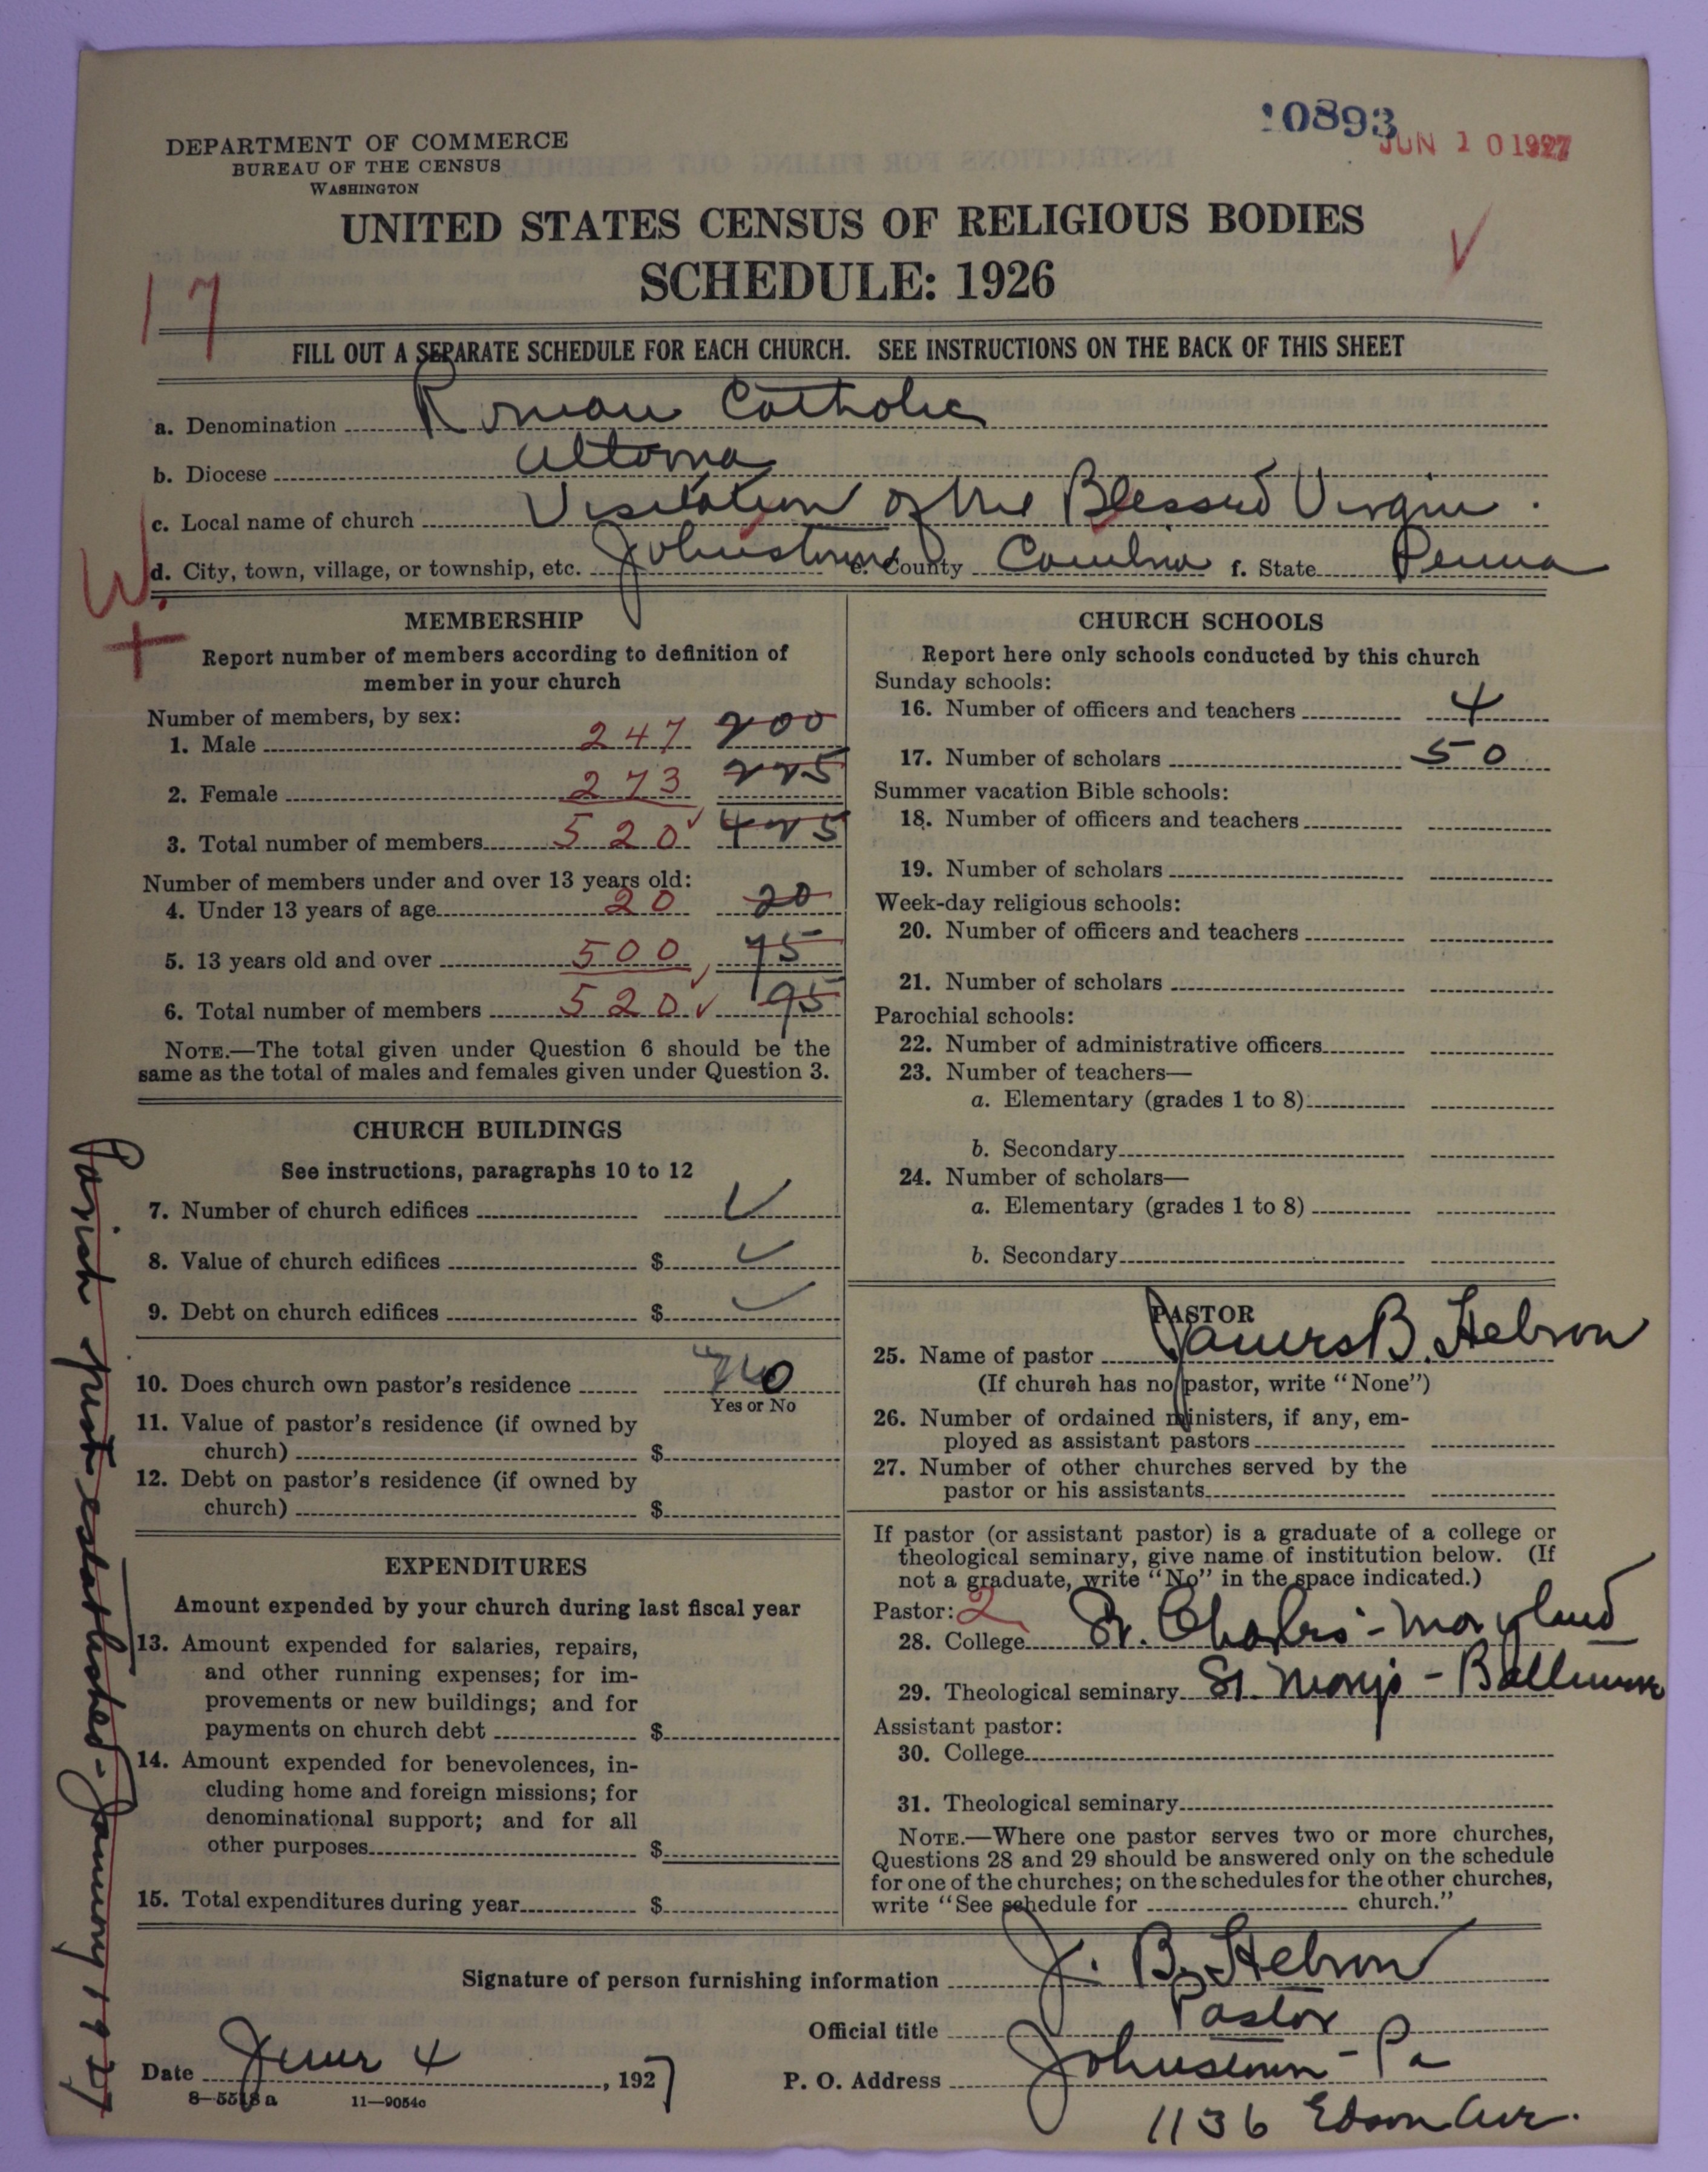 10893
JUN 10 1927
DEPARTMENT OF COMMERCE
BUREAU OF THE CENSUS
WASHINGTON
UNITED STATES CENSUS OF RELIGIOUS BODIES
SCHEDULE: 1926
17
FILL OUT A SEPARATE SCHEDULE FOR EACH CHURCH. SEE INSTRUCTIONS ON THE BACK OF THIS SHEET
a. Denomination Roman Catholic
b. Diocese Altoona
c. Local name of church Visitation of the Blessed Virgin.
d. City, town, village, or township, etc. Johnstown e. County Cambria f. State Penna
W.
+
MEMBERSHIP
Report number of members according to definition of
member in your church
Number of members, by sex:
1. Male 247 200
2. Female 273 225
3. Total number of members 520 425
Number of members under and over 13 years old:
4. Under 13 years of age 20 20
5. 13 years old and over 500 75
6. Total number of members 520 95
NOTE.—The total given under Question 6 should be the
same as the total of males and females given under Question 3.
CHURCH BUILDINGS
See instructions, paragraphs 10 to 12
7. Number of church edifices ✓
8. Value of church edifices $ ✓
9. Debt on church edifices $ ✓
10. Does church own pastor's residence No
Yes or No
11. Value of pastor's residence (if owned by
church) $
12. Debt on pastor's residence (if owned by
church) $
EXPENDITURES
Amount expended by your church during last fiscal year
13. Amount expended for salaries, repairs,
and other running expenses; for im-
provements or new buildings; and for
payments on church debt $
14. Amount expended for benevolences, in-
cluding home and foreign missions; for
denominational support; and for all
other purposes $
15. Total expenditures during year $
CHURCH SCHOOLS
Report here only schools conducted by this church
Sunday schools:
16. Number of officers and teachers 4
17. Number of scholars 50
Summer vacation Bible schools:
18. Number of officers and teachers
19. Number of scholars
Week-day religious schools:
20. Number of officers and teachers
21. Number of scholars
Parochial schools:
22. Number of administrative officers
23. Number of teachers—
a. Elementary (grades 1 to 8)
b. Secondary
24. Number of scholars—
a. Elementary (grades 1 to 8)
b. Secondary
PASTOR
25. Name of pastor James B. Hebron
(If church has no pastor, write "None")
26. Number of ordained ministers, if any, em-
ployed as assistant pastors
27. Number of other churches served by the
pastor or his assistants
If pastor (or assistant pastor) is a graduate of a college or
theological seminary, give name of institution below. (If
not a graduate, write "No" in the space indicated.)
Pastor: 2
28. College St. Charles - Maryland
29. Theological seminary St. Marys - Baltimore
Assistant pastor:
30. College
31. Theological seminary
NOTE.—Where one pastor serves two or more churches,
Questions 28 and 29 should be answered only on the schedule
for one of the churches; on the schedules for the other churches,
write "See schedule for church."
Parish just established - January 1927
Signature of person furnishing information J. B. Hebron
Official title Pastor
Date June 4, 1927
P. O. Address Johnstown - Pa
1136 Edson Ave.
8—5518a 11—9054c